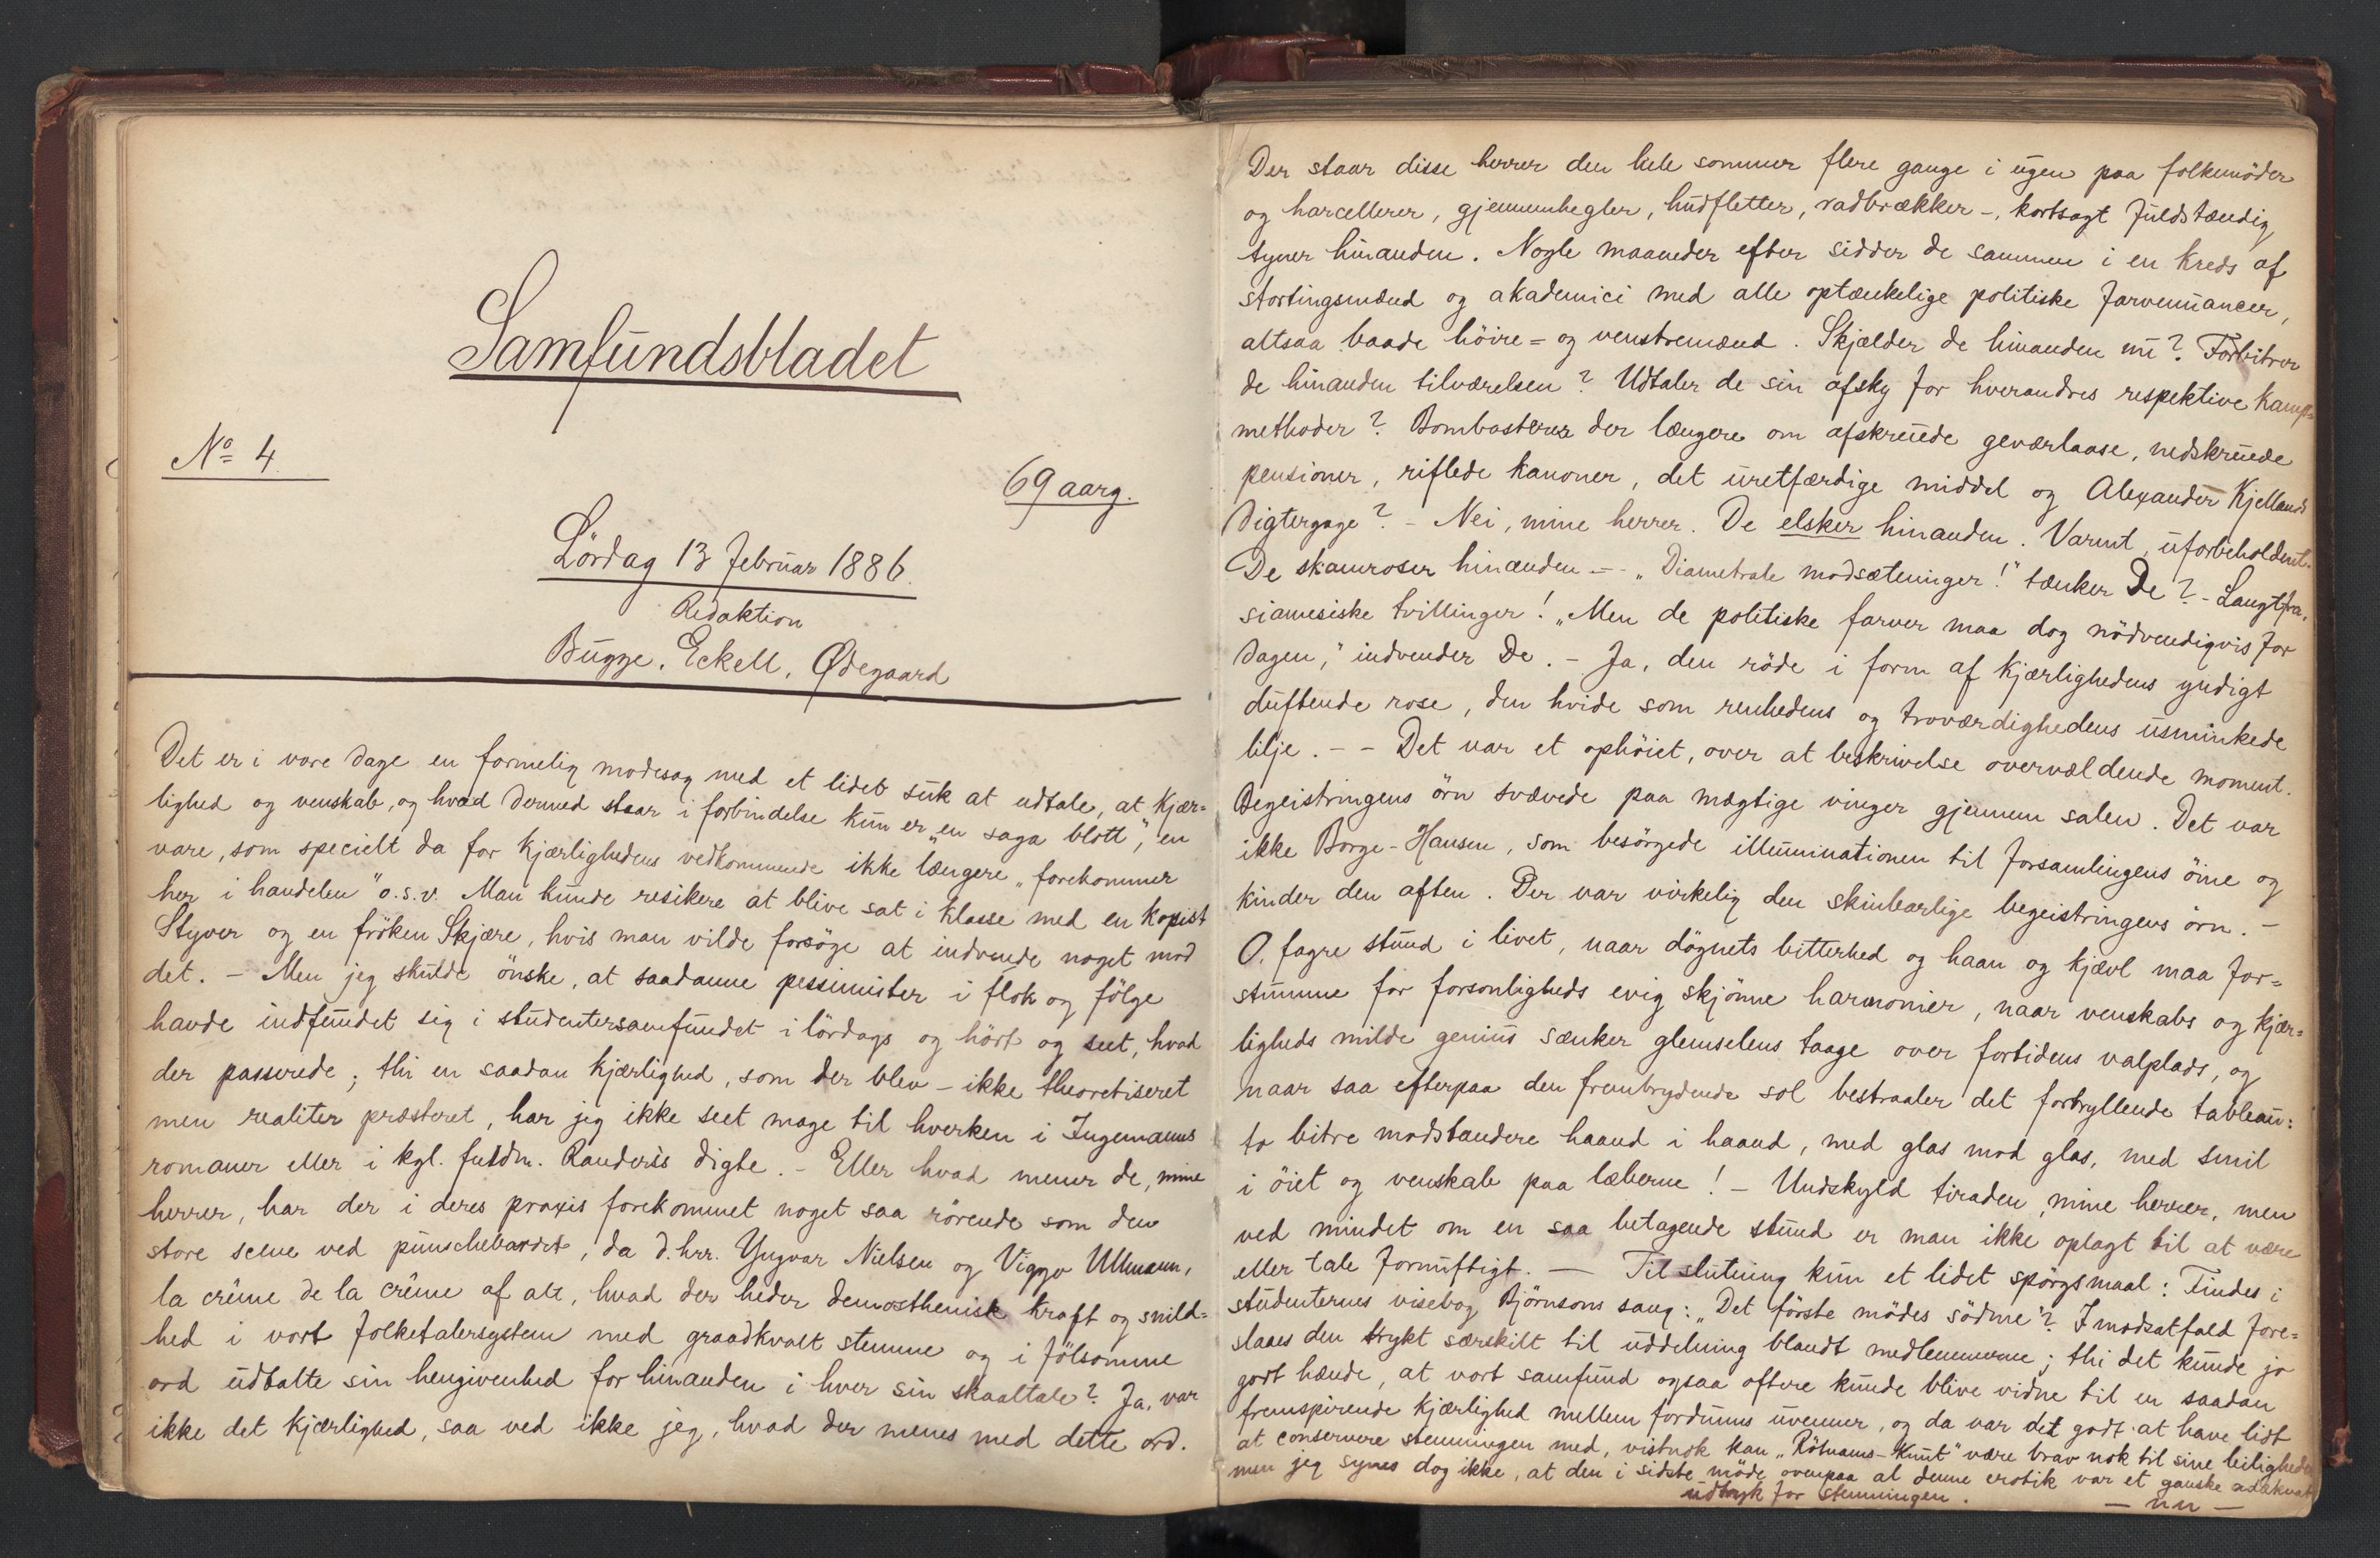 Samfundsbladet
No 4
69 aarg.
Lördag 13 februar 1886.
Redaktion
Bugge, Eckell, Ødegaard
Det er i vore dage en formelig modesag med et lidet suk at udtale, at kjær=
lighed og venskab, og hvad dermed staar i forbindelse kun er „en saga blott”, en
vare, som specielt da for kjærlighedens vedkommende ikke længere „forekommer
her i handelen” o.s.v. Man kunde resikere at blive sat i klasse med en kopist
Styver og en fröken Skjære, hvis man vilde forsöge at indvende noget mod
det. – Men jeg skulde önske, at saadanne pessimister i flok og fölge
havde indfundet sig i studentersamfundet i lördags og hört og seet, hvad
der passerede; thi en saadan kjærlighed, som der blev – ikke theoretiseret
men realiter præsteret, har jeg ikke seet mage til hverken i Ingemanns
romaner eller i kgl. fuldm. Randers's digte. – Eller hvad mener de, mine
herrer, har der i deres praxis forekommet noget saa rörende som den
store scene ved punschebordet, da d.hrr. Yngvar Nielsen og Viggo Ullmann,
la crême de la crême af alt, hvad der heder demosthenisk kraft og snild=
hed i vort folketalersystem med graadkvalt stemme og i fölsomme
ord udtalte sin hengivenhed for hinanden i hver sin skaaltale? Ja, var
ikke det kjærlighed, saa ved ikke jeg, hvad der menes med dette ord.
Der staar disse herrer den hele sommer flere gange i ugen paa folkemöder
og harcellerer, gjennemhegler, hudfletter, radbrækker –, kortsagt fuldstændig
tyner hinanden. Nogle maaneder efter sidder de sammen i en kreds af
stortingsmænd og akademici med alle optænkelige politiske farvenuancer,
altsaa baade höire= og venstremænd. Skjælder de hinanden nu? Forbitrer
de hinanden tilværelsen? Udtaler de sin afsky for hverandres respektive kamp=
methoder? Bombasterer der længere om afskruede geværlaase, nedskruede
pensioner, riflede kanoner, det uretfærdige middel og Alexander Kjellands
digtergage? – Nei, mine herrer. De elsker hinanden. Varmt, uforbeholdent.
De skamroser hinanden – – „Diametrale modsætninger!” tænker De? – Langtfra,
siamesiske tvillinger! „Men de politiske farver maa dog nödvendigvis for
dagen,” indvender De. – Ja, den röde i form af kjærlighedens yndigt
duftende rose, den hvide som renhedens og troværdighedens usminkede
lilje. – – Det var et ophöiet, over at beskrivelse overvældende moment.
Begeistringens örn svævede paa mægtige vinger gjennem salen. Det var
ikke Borge-Hansen, som besörgede illuminationen til forsamlingens öine og
kinder den aften. Der var virkelig den skinbarlige begeistringens örn. –
O, fagre stund i livet, naar dögnets bitterhed og haan og kjævl maa for=
stumme for forsonligheds evig skjönne harmonier, naar venskabs og kjær=
ligheds milde genius sænker glemselens taage over fortidens valplads, og
naar saa efterpaa den frembrydende sol bestraaler det fortryllende tableau:
to bitre modstandere haand i haand, med glas mod glas, med smil
i öiet og venskab paa læberne! – Undskyld tiraden, mine herrer, men
ved mindet om en saa betagende stund er man ikke oplagt til at være
eller tale fornuftigt. — Til slutning kun et lidet spörgsmaal: Findes i
studenternes visebog Björnsons sang: „Det förste mödes södme”? I modsatfald fore=
slaaes den trykt særskilt til uddeling blandt medlemmerne; thi det kunde jo
godt hænde, at vort samfund ogsaa oftere kunde blive vidne til en saadan
fremspirende kjærlighed mellem fordums uvenner, og da var det godt at have lidt
at conservere stemningen med, vistnok kan „Rötnams-Knut” være brav nok til sine leiligheder
men jeg synes dog ikke, at den i sidste möde ovenpaa al denne erotik var et ganske adækvat
udtryk for stemningen.
— nn —